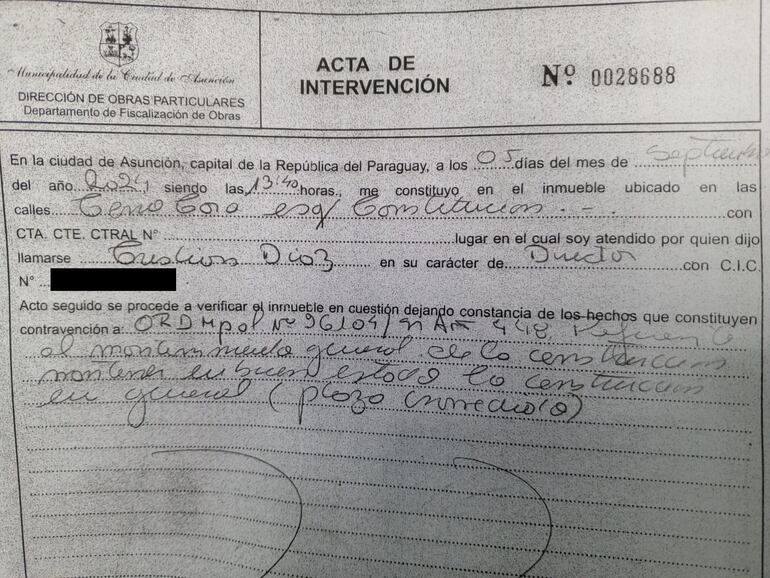 Municipalidad de la Ciudad de Asunción
DIRECCIÓN DE OBRAS PARTICULARES
Departamento de Fiscalización de Obras
ACTA DE
INTERVENCIÓN
Nº 0028688
En la ciudad de Asunción, capital de la República del Paraguay, a los 05 días del mes de septiembre
del año 2024 siendo las 13:40 horas., me constituyo en el inmueble ubicado en las
calles Cerro Cora esq/ Constitucion. - . - con
CTA. CTE. CTRAL N° lugar en el cual soy atendido por quien dijo
llamarse Cristian Diaz en su carácter de Director con C.I.C.
N°
Acto seguido se procede a verificar el inmueble en cuestión dejando constancia de los hechos que constituyen
contravención a: ORD Mpal Nº 26104/91 Art 448. Referente
al mantenimiento general de la construccion
mantener en buen estado la construccion
en general (plazo inmediato)